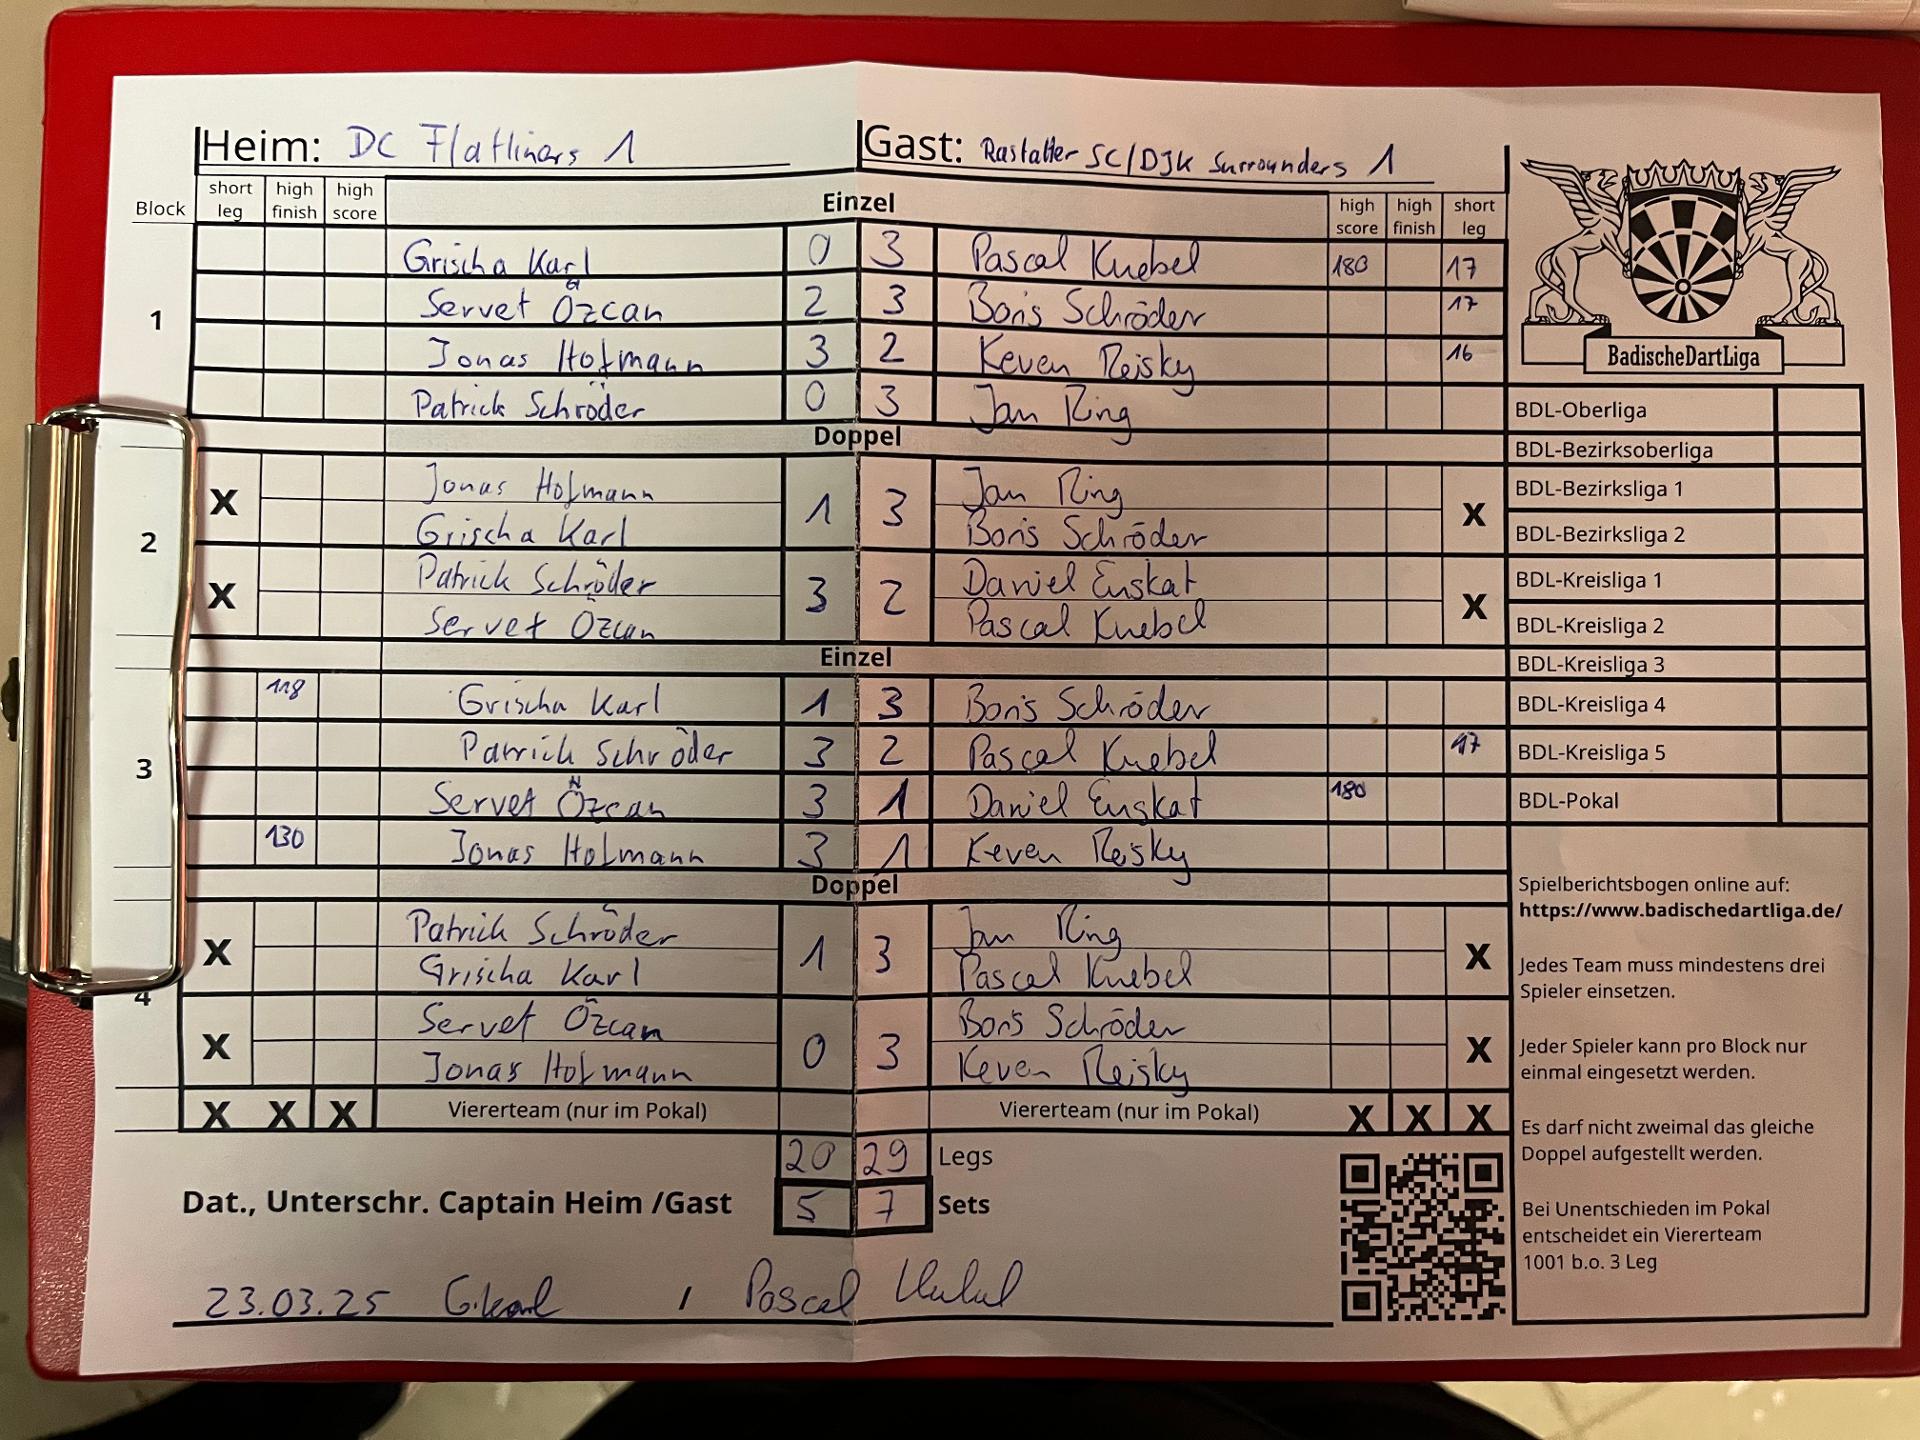 Heim: DC Flatliners 1 Gast: Rastatter SC/DJK Surrounders 1
Block short leg high finish high score Einzel high score high finish short leg
1
Grischa Karl 0 3 Pascal Knebel 180 17
Servet Özcan 2 3 Boris Schröder 17
Jonas Hofmann 3 2 Keven Reisky 16
Patrick Schröder 0 3 Jan Ring
Doppel
2
X Jonas Hofmann 1 3 Jan Ring X
Grischa Karl Boris Schröder
X Patrick Schröder 3 2 Daniel Enskat X
Servet Özcan Pascal Knebel
Einzel
3
118 Grischa Karl 1 3 Boris Schröder
Patrick Schröder 3 2 Pascal Knebel 17
Servet Özcan 3 1 Daniel Enskat 180
130 Jonas Hofmann 3 1 Keven Reisky
Doppel
4
X Patrick Schröder 1 3 Jan Ring X
Grischa Karl Pascal Knebel
X Servet Özcan 0 3 Boris Schröder X
Jonas Hofmann Keven Reisky
X X X Viererteam (nur im Pokal) Viererteam (nur im Pokal) X X X
20 29 Legs
Dat., Unterschr. Captain Heim /Gast 5 7 Sets
23.03.25 G.Karl / Pascal Knebel
BadischeDartLiga
BDL-Oberliga
BDL-Bezirksoberliga
BDL-Bezirksliga 1
BDL-Bezirksliga 2
BDL-Kreisliga 1
BDL-Kreisliga 2
BDL-Kreisliga 3
BDL-Kreisliga 4
BDL-Kreisliga 5
BDL-Pokal
Spielberichtsbogen online auf:
https://www.badischedartliga.de/
Jedes Team muss mindestens drei
Spieler einsetzen.
Jeder Spieler kann pro Block nur
einmal eingesetzt werden.
Es darf nicht zweimal das gleiche
Doppel aufgestellt werden.
Bei Unentschieden im Pokal
entscheidet ein Viererteam
1001 b.o. 3 Leg